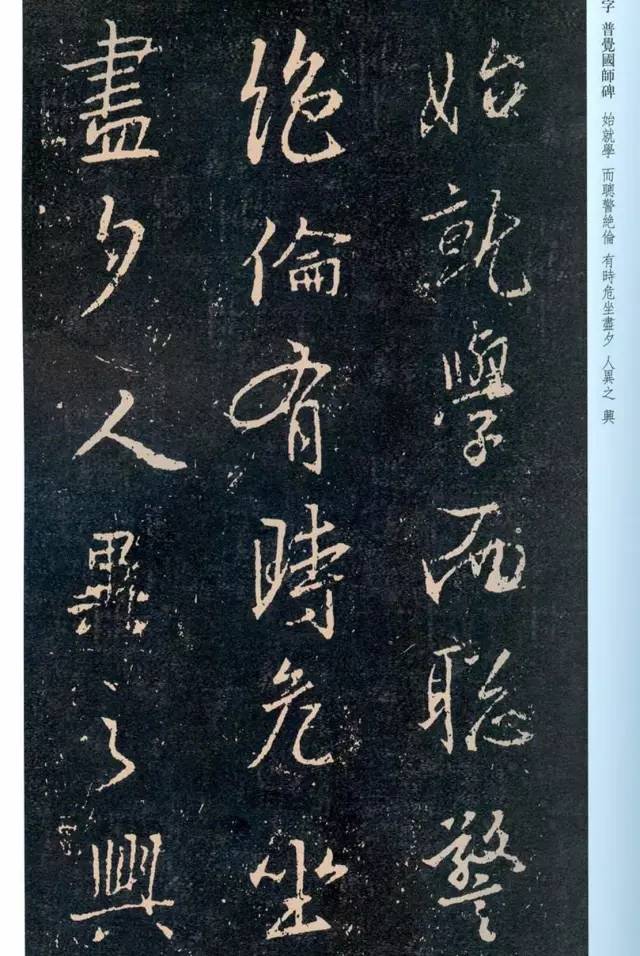 字 普覺國師碑 始就學 而聰警絶倫 有時危坐盡夕 人異之 興
始就學而聡警
絶倫有時危坐
盡夕人異之興